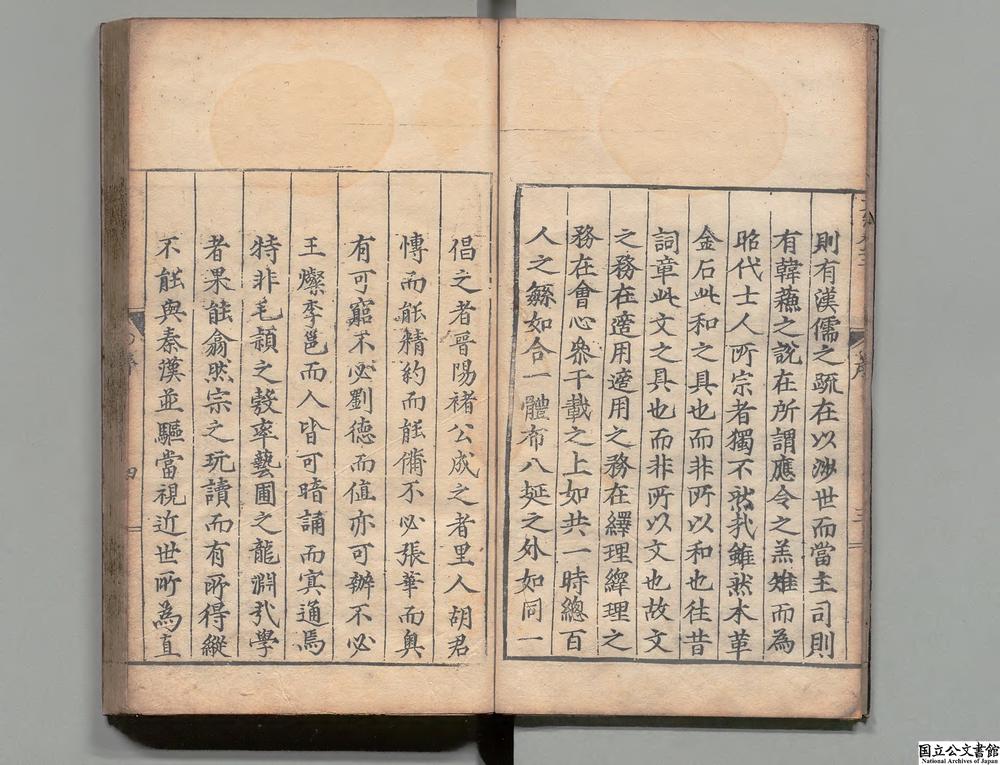 則有漢儒之疏在以涉世而當主司則
有韓蘓之說在所謂應令之羔雉而為
昭代士人所宗者獨不然㢤雖然木革
金石此和之具也而非所以和也徃昔
詞章此文之具也而非所以文也故文
之務在適用適用之務在繹理繹理之
務在會心衆千載之上如共一時總百
人之繇如合一體布八埏之外如同一
倡之者晉陽褚公成之者里人胡君
愽而能精約而能僃不必張華而奧
有可窮不必劉德而值亦可辦不必
王燦李邕而人皆可暗誦而㝠通焉
特非毛穎之彀率藝圃之龍淵㢤學
者果能翕然宗之玩讀而有所得縱
不能與秦漢並驅當視近世所為直
序
三
序
四
国立公文書館
National Archives of Japan